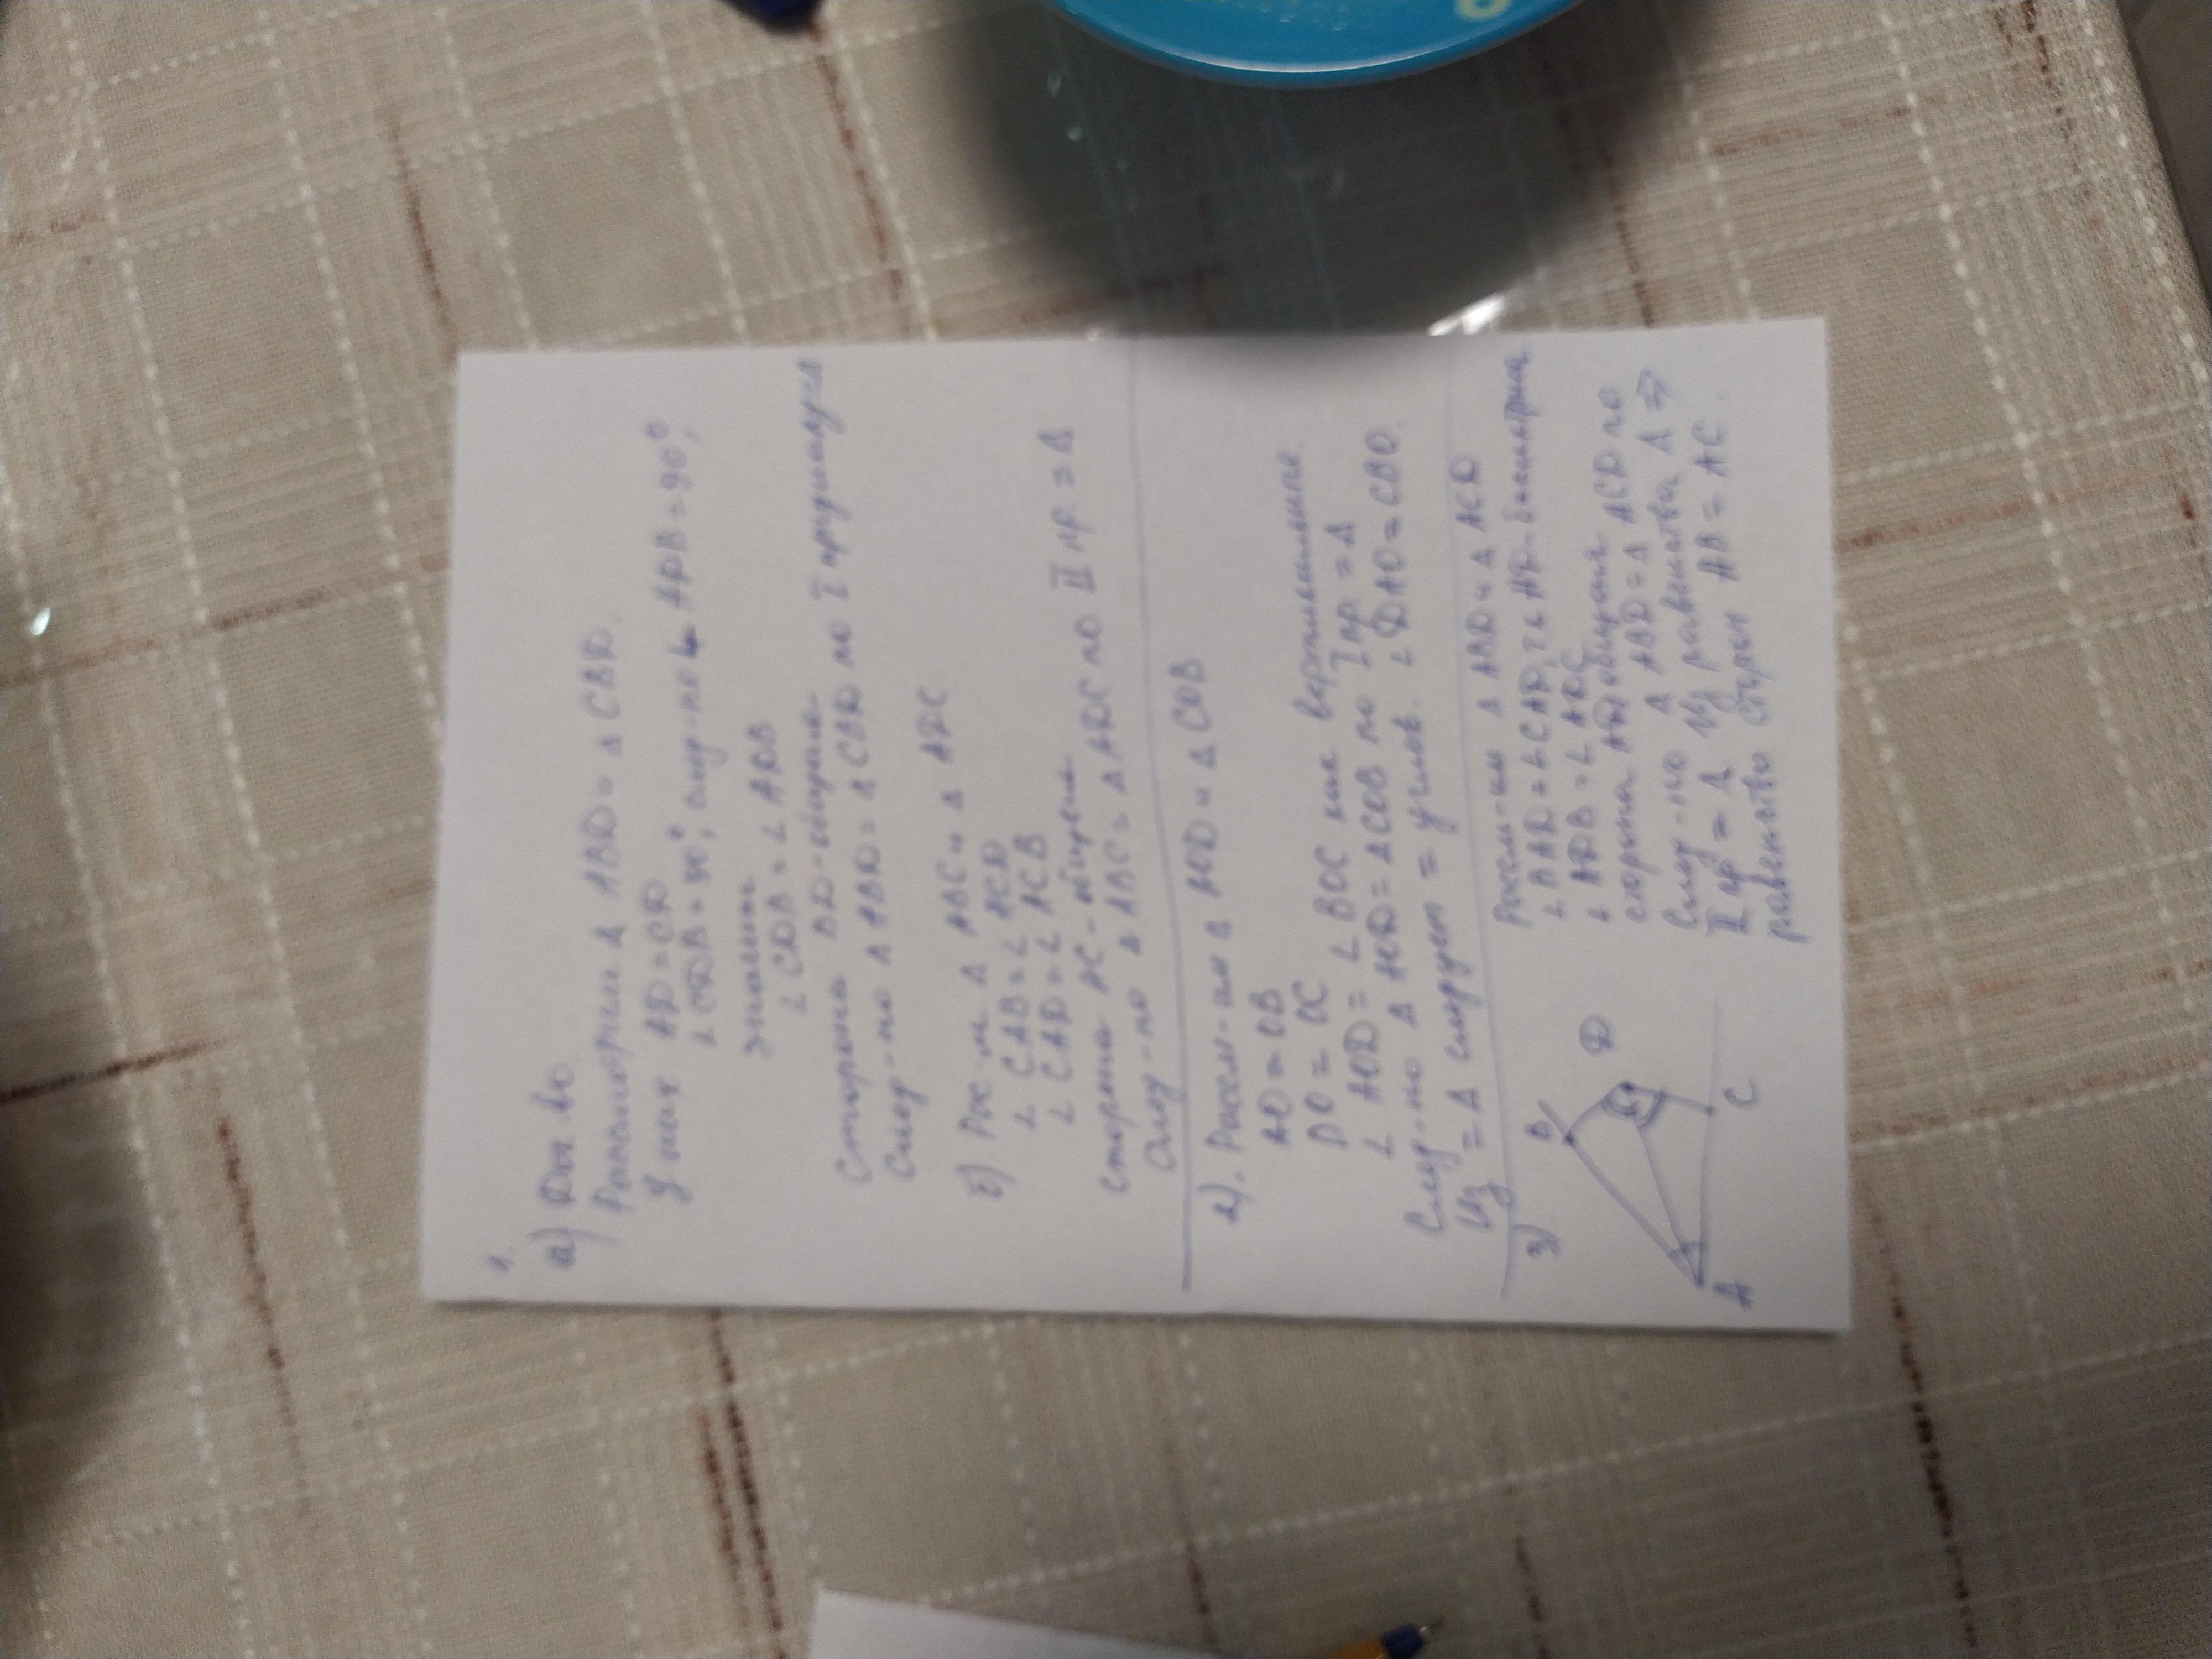 1.
а) Док-во
Рассмотрим Δ ABD и Δ CBD.
У них AD = CD
∠ CDB = 90°, след-но ∠ ADB = 90°,
значит
∠ CDB = ∠ ADB
Сторона BD - общая
След-но Δ ABD = Δ CBD по I признаку = Δ
б) Рас-м Δ ABC и Δ ADC
∠ CAB = ∠ ACD
∠ CAD = ∠ ACB
сторона AC - общая
След-но Δ ABC = Δ ADC по II пр = Δ
2). Рассм-им Δ AOD и Δ COB
AO = OB
DO = OC
∠ AOD = ∠ BOC как вертикальные
След-но Δ AOD = Δ COB по I пр = Δ
Из = Δ следует = углов. ∠ DAO = CBO.
3)
Рассм-им Δ ABD и Δ ACD
∠ BAD = ∠ CAD, тк AD - биссектриса
∠ ADB = ∠ ADC
сторона AD общая
След-но Δ ABD = Δ ACD по
II пр = Δ Из равенства Δ ⇒
равенство сторон AB = AC.
B
D
A
C